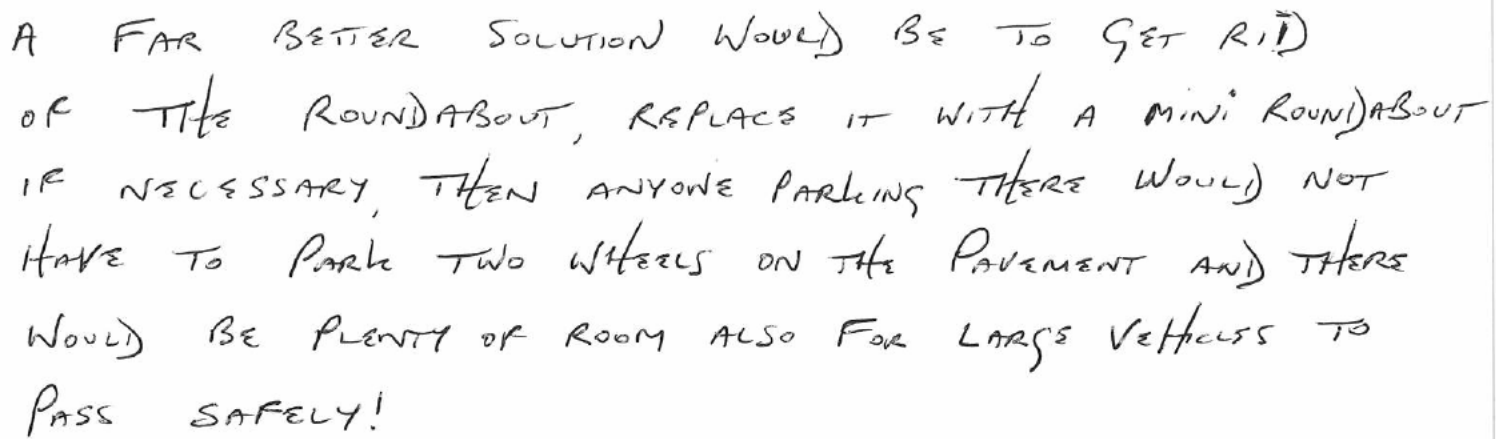 A FAR BETTER SOLUTION WOULD BE TO GET RID
OF THE ROUNDABOUT, REPLACE IT WITH A MINI ROUNDABOUT
IF NECESSARY, THEN ANYONE PARKING THERE WOULD NOT
HAVE TO PARK TWO WHEELS ON THE PAVEMENT AND THERE
WOULD BE PLENTY OF ROOM ALSO FOR LARGE VEHICLES TO
PASS SAFELY!